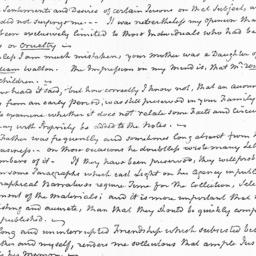 Sentiments and Advice of certain Persons on that Subject, a
did not suppose --- It was nevertheless my opinion tha
been exclusively limited to those Individuals who had be
or Ornestry
I am much mistaken, your mother was a Daughter of
Wallon. The Impression on my mind is, that Mr.
children.
had it said, but how correctly I know not, that an accoun
from an early period, was still preserved in your Family
examine whether it does not relate some Facts and Circu
with Propriety be added to the Notes.
Father was frequently, and sometimes long absent from
On those occasions he doubtless wrote many Let
mbers of it. If they have been preserved, they will prob
some Paragraphs which cast Light on his Agency in publi
graphical Narratives require Time for the Collection, Sele
ment of the Materials; and it is more important that
and accurate, than that they should be quickly comp
published.
long and uninterrupted Friendship which subsisted be
ther and myself, renders me sollicitous that ample Jus
his Memory